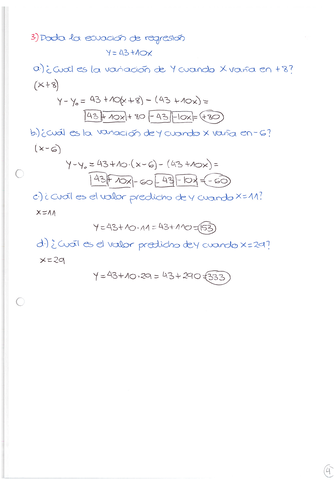 3) Dada la ecuación de regresión
Y=43+10x
a) ¿Cuál es la variación de Y cuando X varía en +8?
(x+8)
Y-Y₀ = 43+10(x+8) - (43+10x) =
43 + 10x + 80 - 43 - 10x = +80
b) ¿Cuál es la variación de Y cuando X varía en -6?
(x-6)
Y-Y₀ = 43+10·(x-6) - (43+10x) =
43 + 10x - 60 - 43 - 10x = -60
c) ¿Cuál es el valor predicho de Y cuando X=11?
X=11
Y=43+10·11=43+110=153
d) ¿Cuál es el valor predicho de Y cuando X=29?
X=29
Y=43+10·29=43+290=333